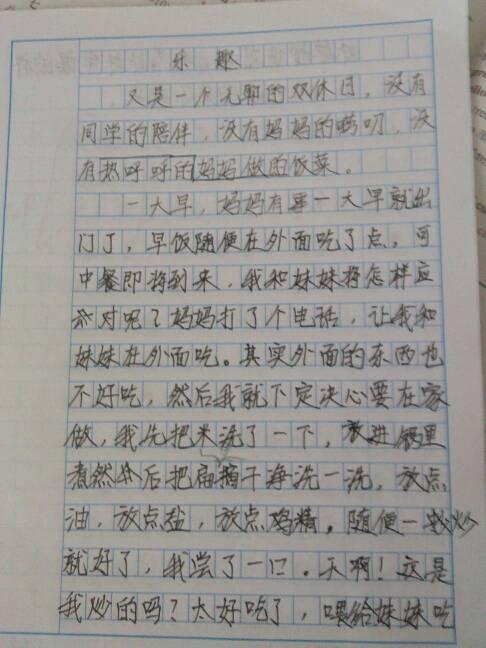 乐趣
又是一个无聊的双休日，没有
同学的陪伴，没有妈妈的唠叨，没
有热呼呼的妈妈做的饭菜。
一大早，妈妈有事一大早就出
门了，早饭随便在外面吃了点，可
中餐即将到来，我和妹妹将怎样应
对呢？妈妈打了个电话，让我和
妹妹在外面吃。其实外面的东西也
不好吃，然后我就下定决心要在家
做，我先把米洗了一下，放进锅里
煮然后把扁摘干净洗一洗，放点
油，放点盐，放点鸡精，随便一炒
就好了，我尝了一口。天啊！这是
我炒的吗？太好吃了，喂给妹妹吃